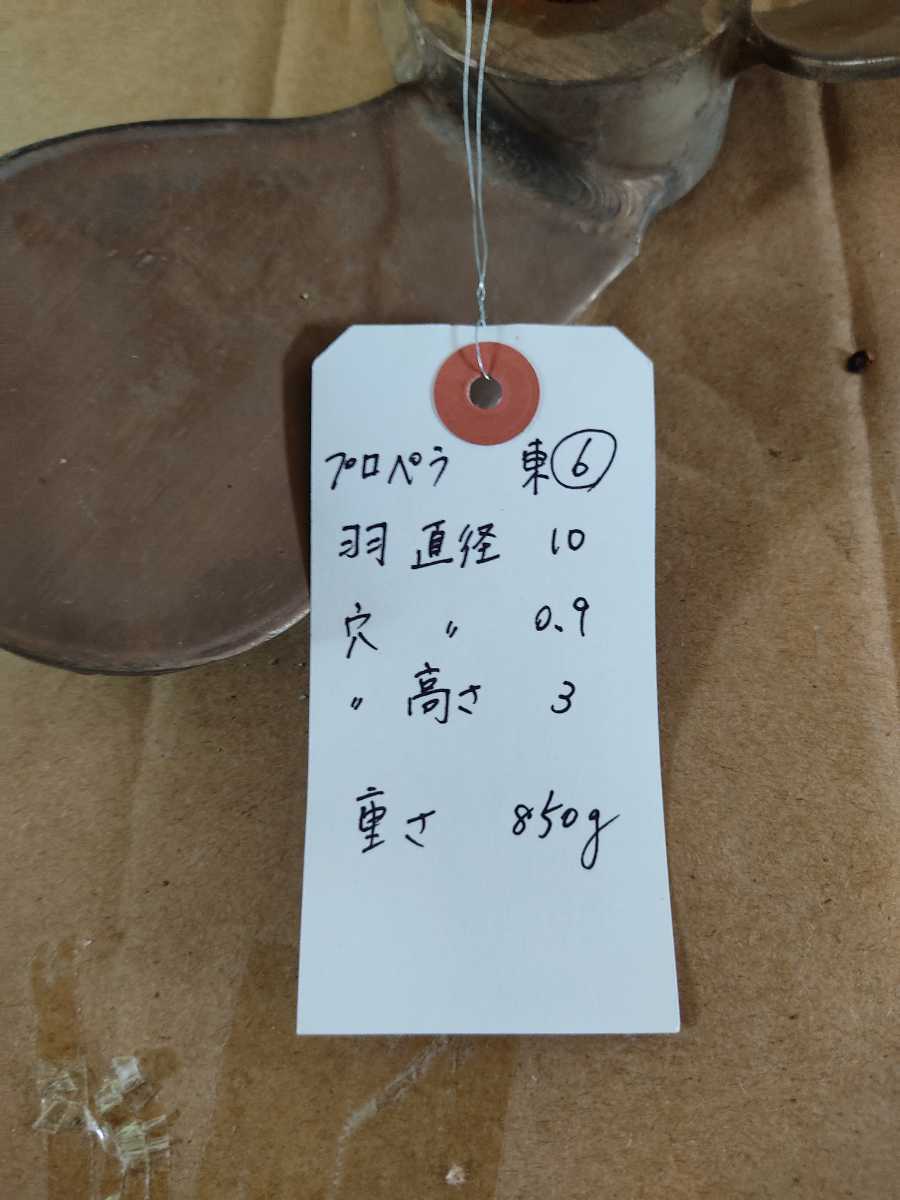 プロペラ 東⑥
羽 直径 10
穴 〃 0.9
〃 高さ 3
重さ 850g